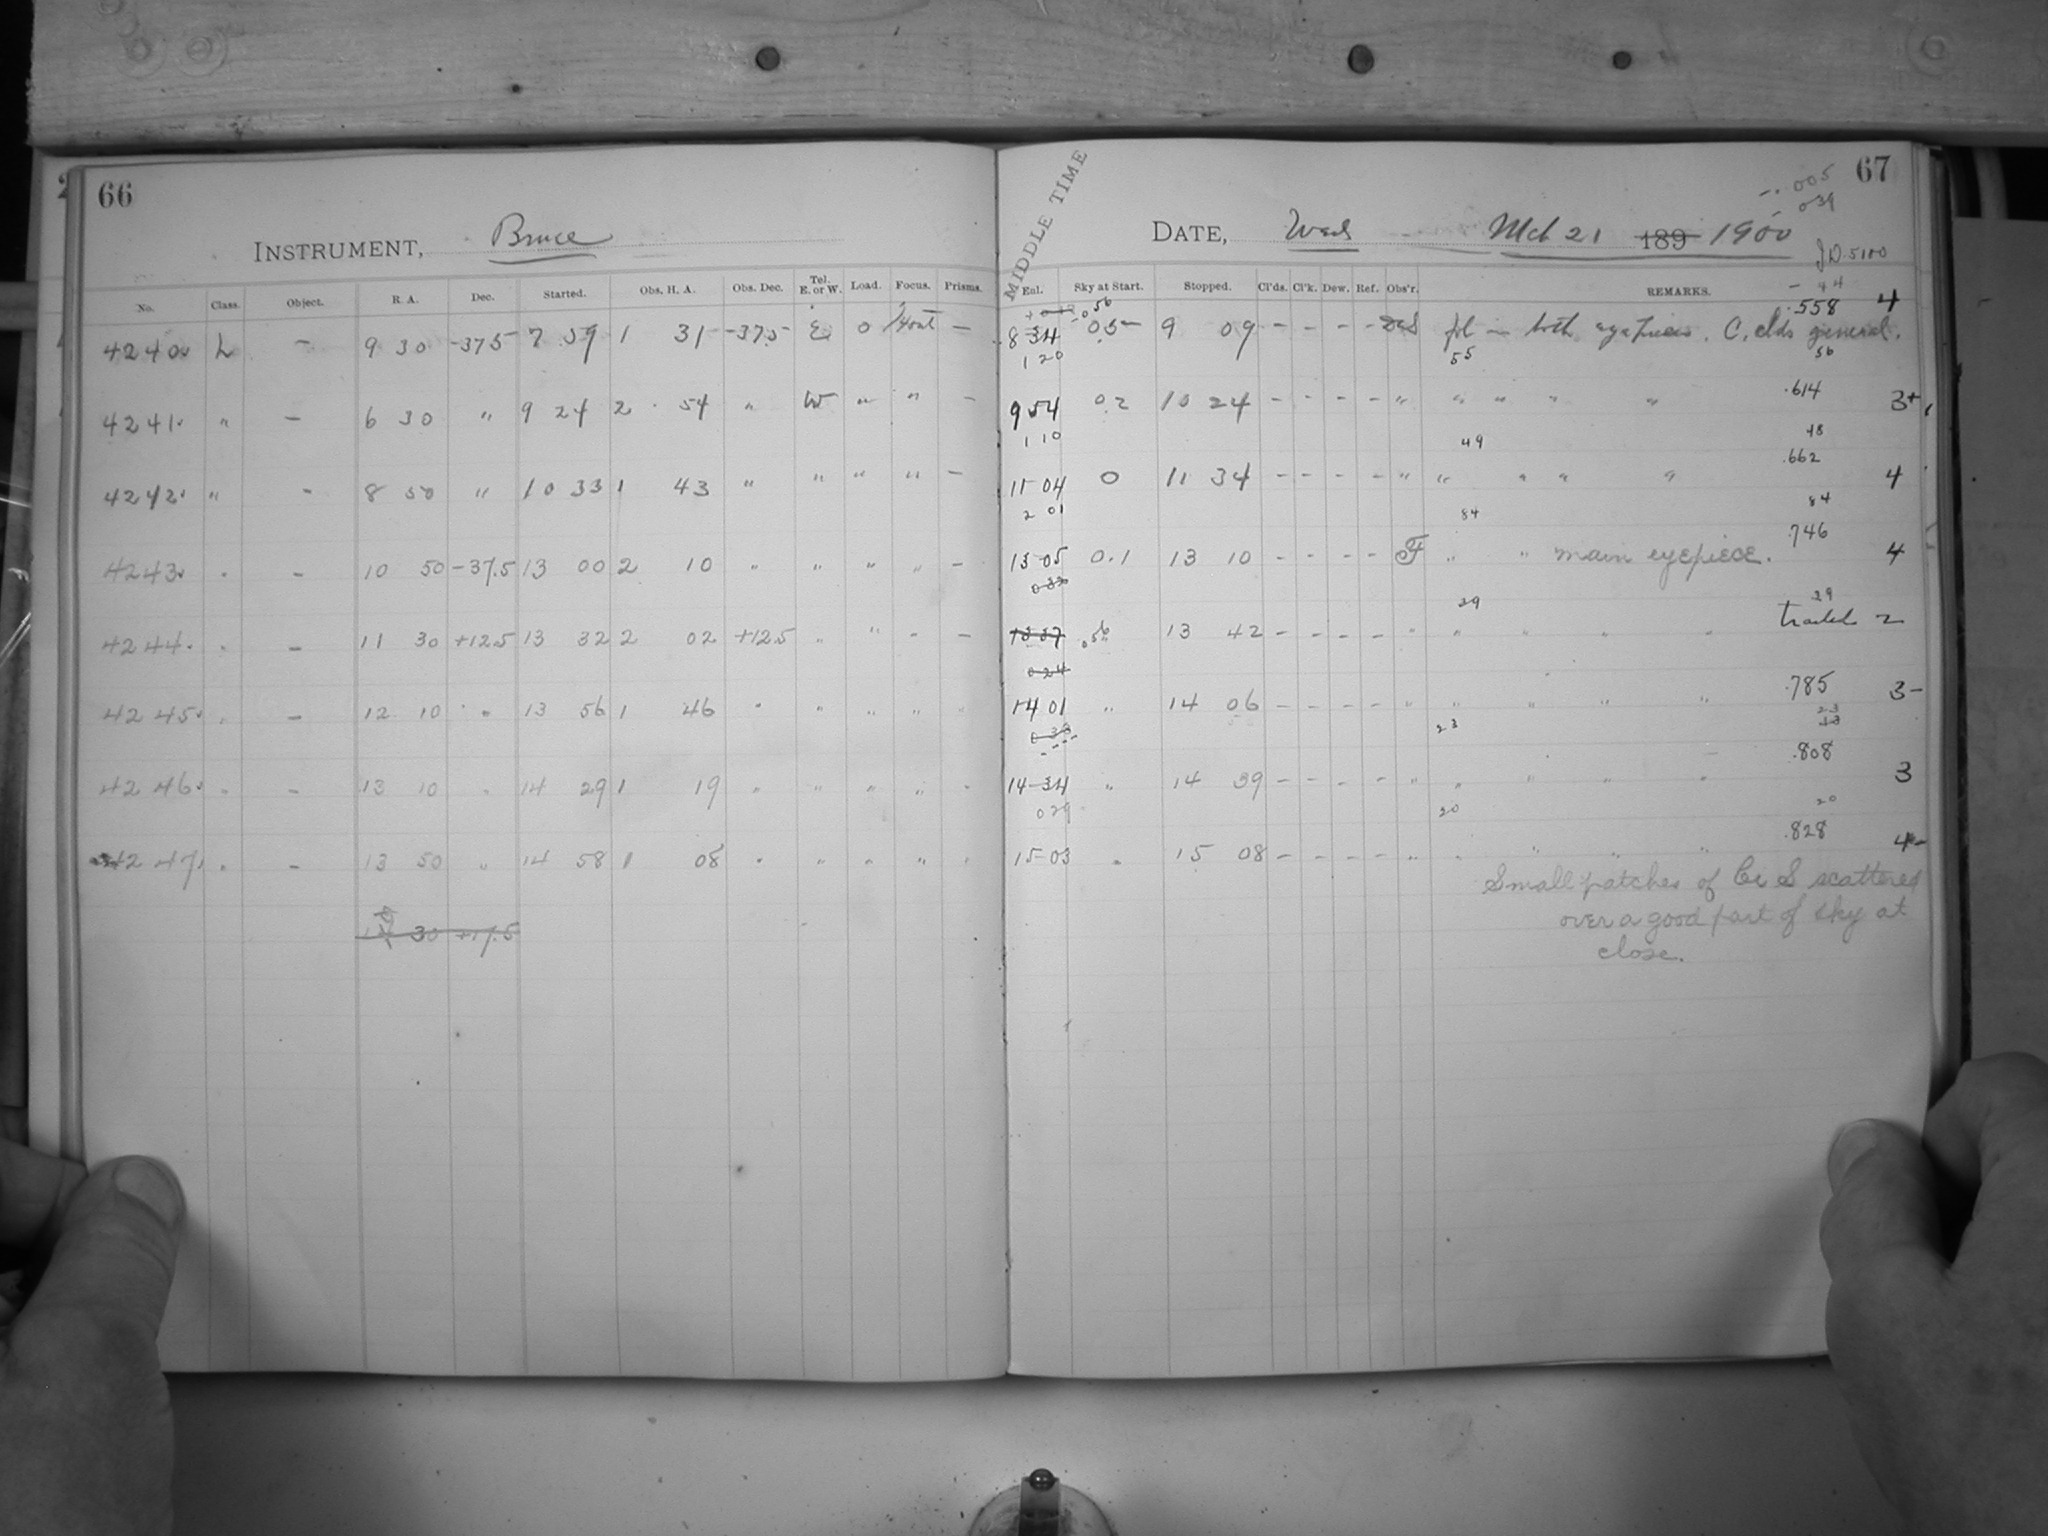 66
INSTRUMENT, Bruce
No. Class. Object. R. A. Dec. Started. Obs. H. A. Obs. Dec. Tel. E. or W. Load. Focus. Prisms.
4240 L – 9 30 -37.5 7 59 1 31 -37.5 E 0 –
4241 " – 6 30 " 9 24 2 54 " W " " –
4242 " – 8 50 " 10 33 1 43 " " " " –
4243 " – 10 50 -37.5 13 00 2 10 " " " " –
4244 " – 11 30 +12.5 13 32 2 02 +12.5 " " – –
4245 " – 12 10 " 13 56 1 46 " " " " "
4246 " – 13 10 " 14 29 1 19 " " " " "
4247 " – 13 50 " 14 58 1 08 " " " " "
30 +17.5
67
-.005
039
MIDDLE TIME
DATE, Wed Mch 21 189 1900
J.D. 5100
Enl. Sky at Start. Stopped. Cl'ds. Cl'k. Dew. Ref. Obs'r. REMARKS.
56 - 44
.558 4
8 34 0.5 9 09 – – – – both eyepieces. C. clds general.
1 20 55 56
9 54 0.2 10 24 – – – – " " " " " .614 3+
1 10 49 48
11 04 0 11 34 – – – – " " " " " .662 4
2 01 84 84
13 05 0.1 13 10 – – – – F " " main eyepiece. .746 4
0 32
29 29
13 37 " 13 42 – – – – " " " " " trailed 2
0 24
14 01 " 14 06 – – – – " " " " " .785 3-
0 33 23 23
14 34 " 14 39 – – – – " " " " " .808 3
0 29 20 20
15 03 " 15 08 – – – – " " " " " .828 4-
Small patches of Ci S scattered
over a good part of sky at
close.